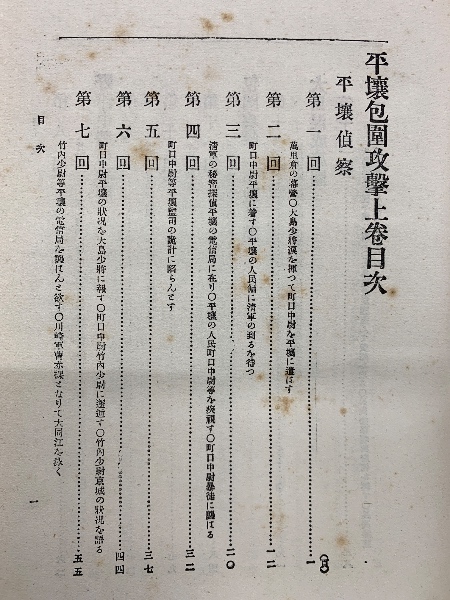 平壤包圍攻擊上卷目次
平壤偵察
第一回……一(頁)
萬里倉の幕營〇大島少將淚を揮つて町口中尉を平壤に遣はす
第二回……一二
町口中尉平壤に着す〇平壤の人民歸に清軍の到るを待つ
第三回……二〇
清軍の秘密探偵平壤の電信局に在り〇平壤の人民町口中尉等を疾視す〇町口中尉暴徒に襲はる
第四回……三二
町口中尉等平壤監司の詭計に陷らんとす
第五回……三七
町口中尉平壤の狀況を大島少將に報す〇町口中尉竹內少尉に邂逅す〇竹內少尉京城の狀況を語る
第六回……四四
竹內少尉等平壤の電信局を襲はんと欲す〇川崎軍曹亦諜となりて大同江を泳く
第七回……五五
目次
一